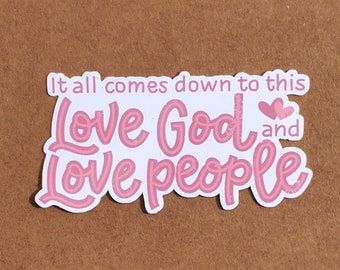 It all comes down to this
Love God and
Love people